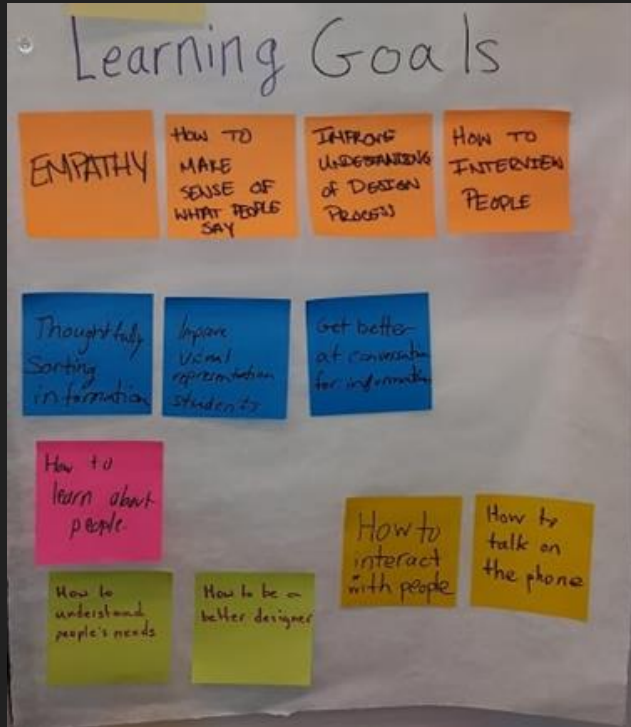 Learning Goals
EMPATHY
HOW TO
MAKE
SENSE OF
WHAT PEOPLE
SAY
IMPROVE
UNDESTANDING
OF DESIGN
PROCESS
HOW TO
INTERVIEW
PEOPLE
Thoughtfully
Sorting
information
Improve
visual
representation
students
Get better
at conversation
for information
How to
learn about
people.
How to
interact
with people
How to
talk on
the phone
How to
understand
people's needs
How to be a
better designer